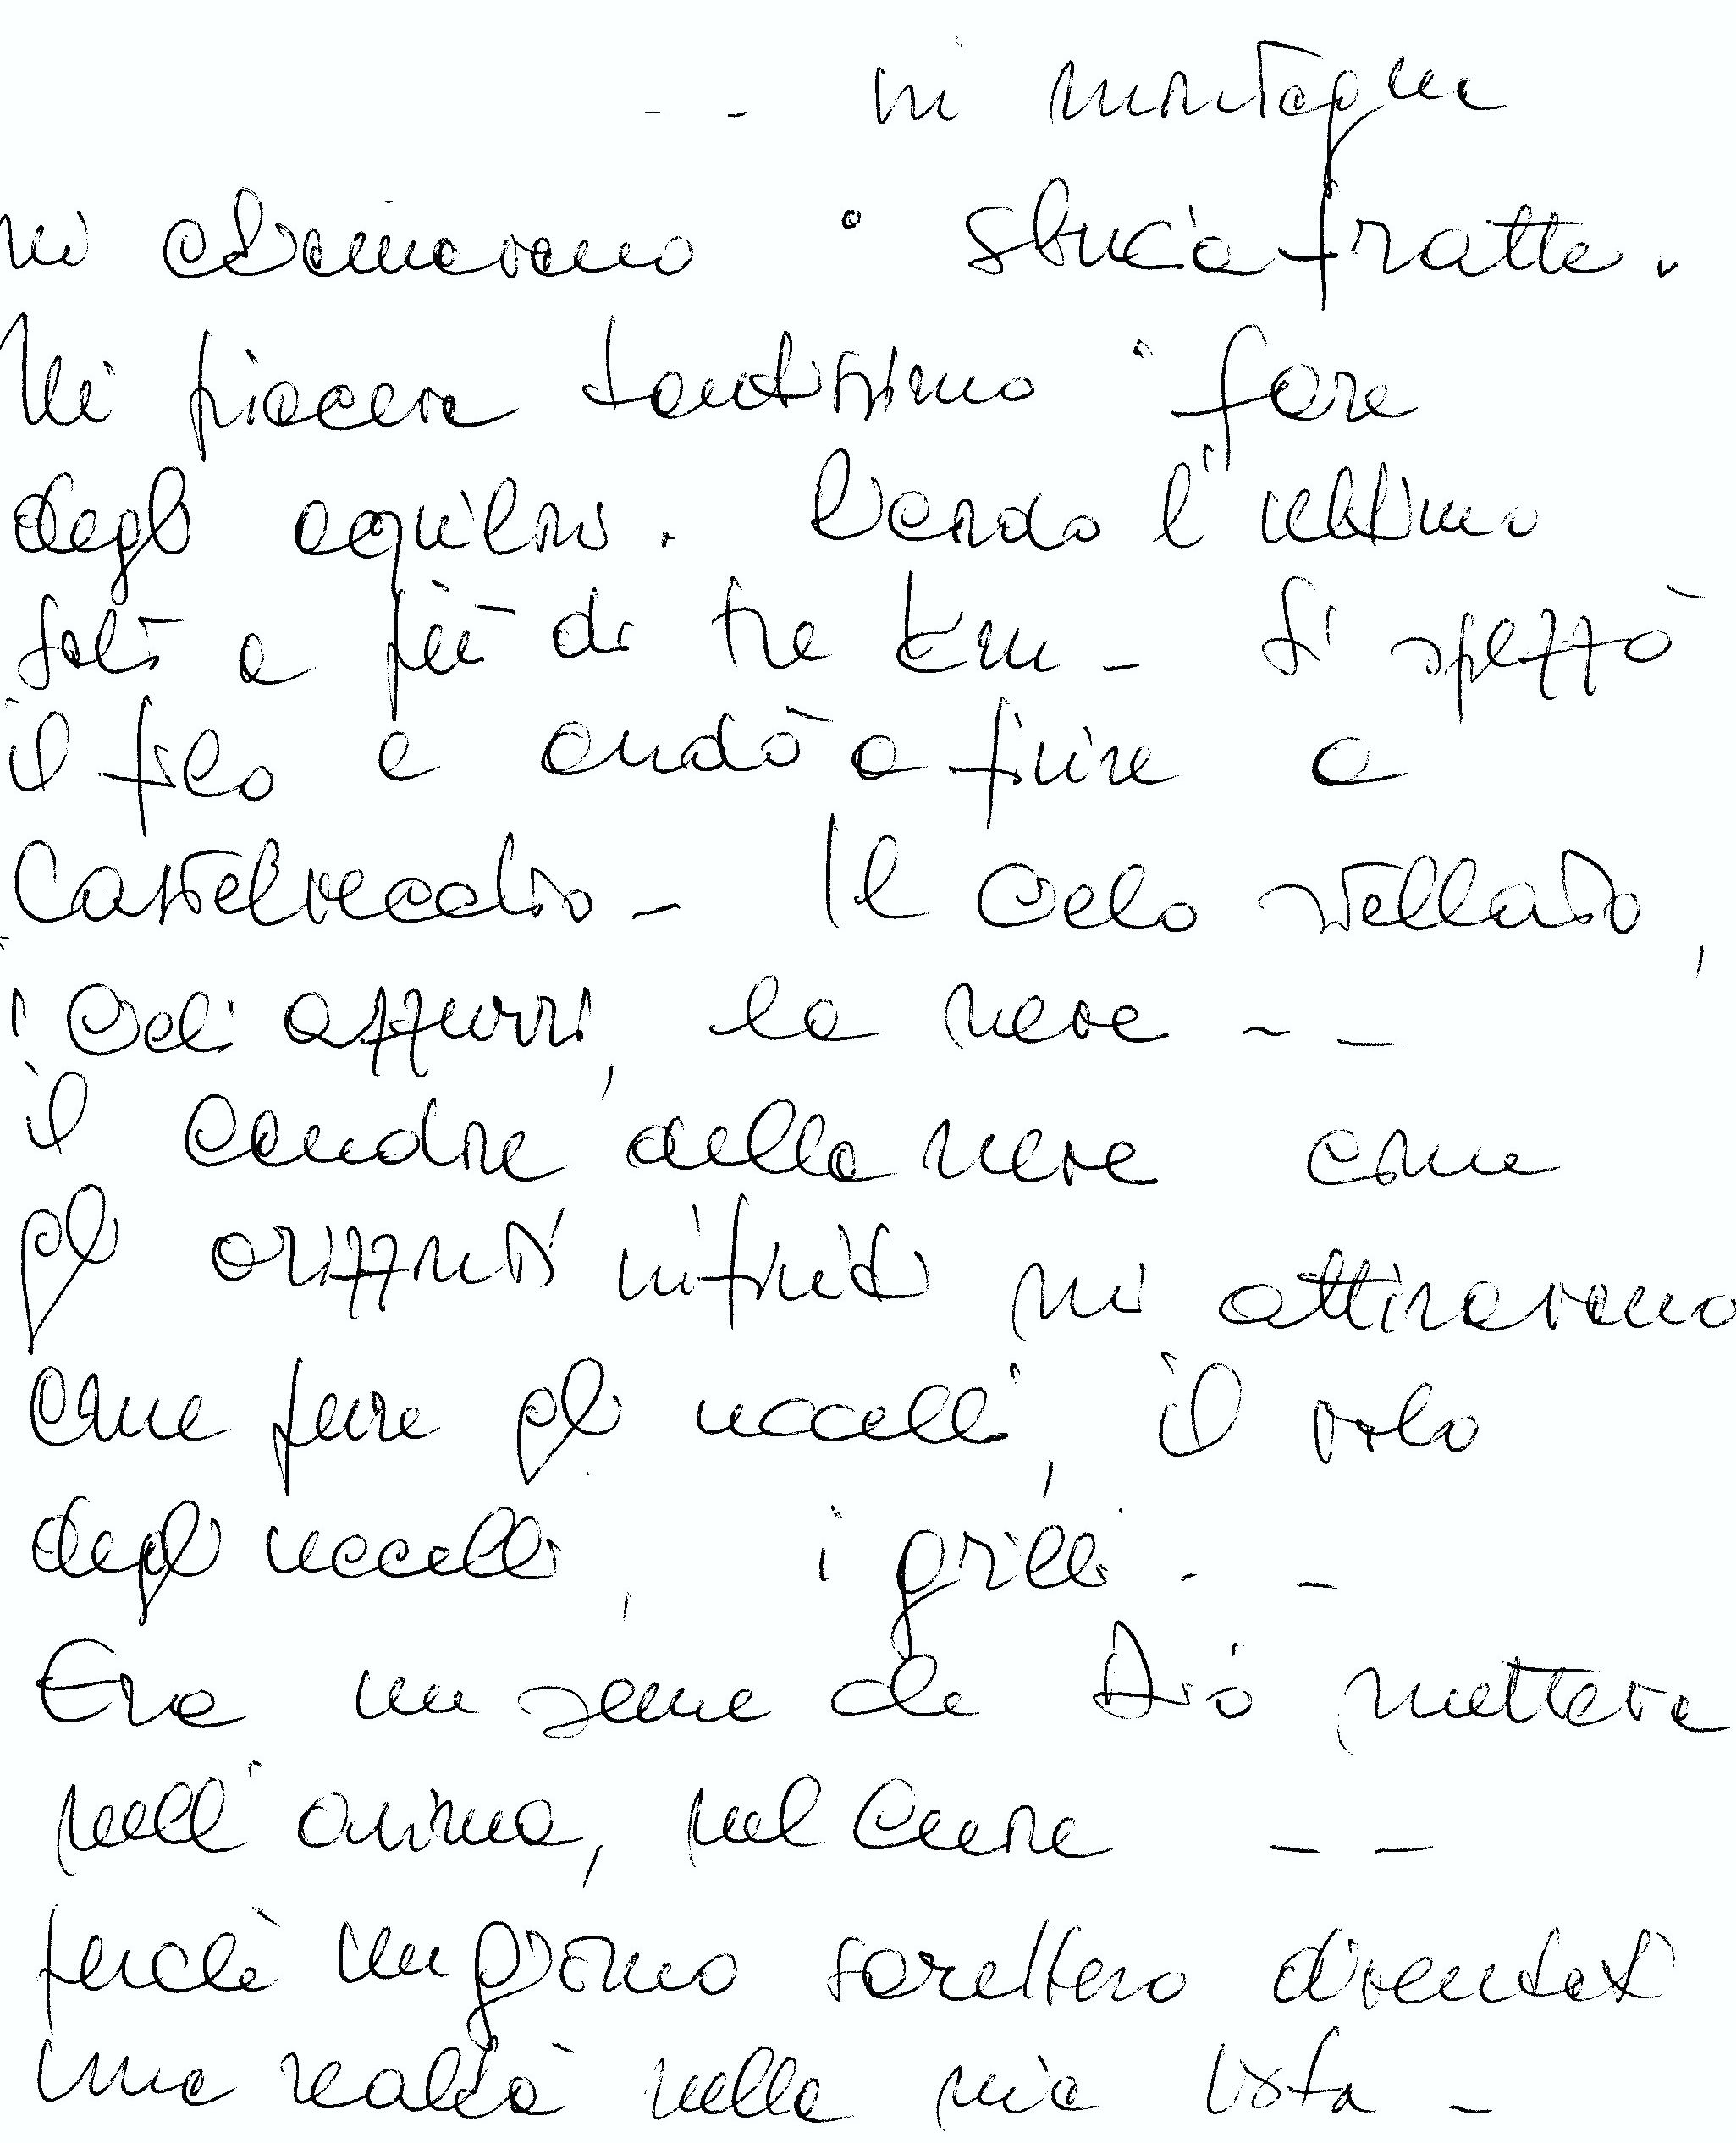 -- in montagna
mi chiamavano sbuca-fratte.
Mi piaceva tantissimo fare
degli aquiloni. Ricordo l'ultimo
salì a più di tre km - Si spezzò
il filo e andò a finire a
Castelvecchio - Il cielo stellato,
i cieli azzurri, la neve --
il candore della neve come
gli orizzonti infiniti mi attiravano
come pure gli uccelli, il volo
degli uccelli, i grilli --
Era un seme che Dio metteva
nell'anima, nel cuore --
perchè un giorno sarebbero diventati
una realtà nella mia vita -